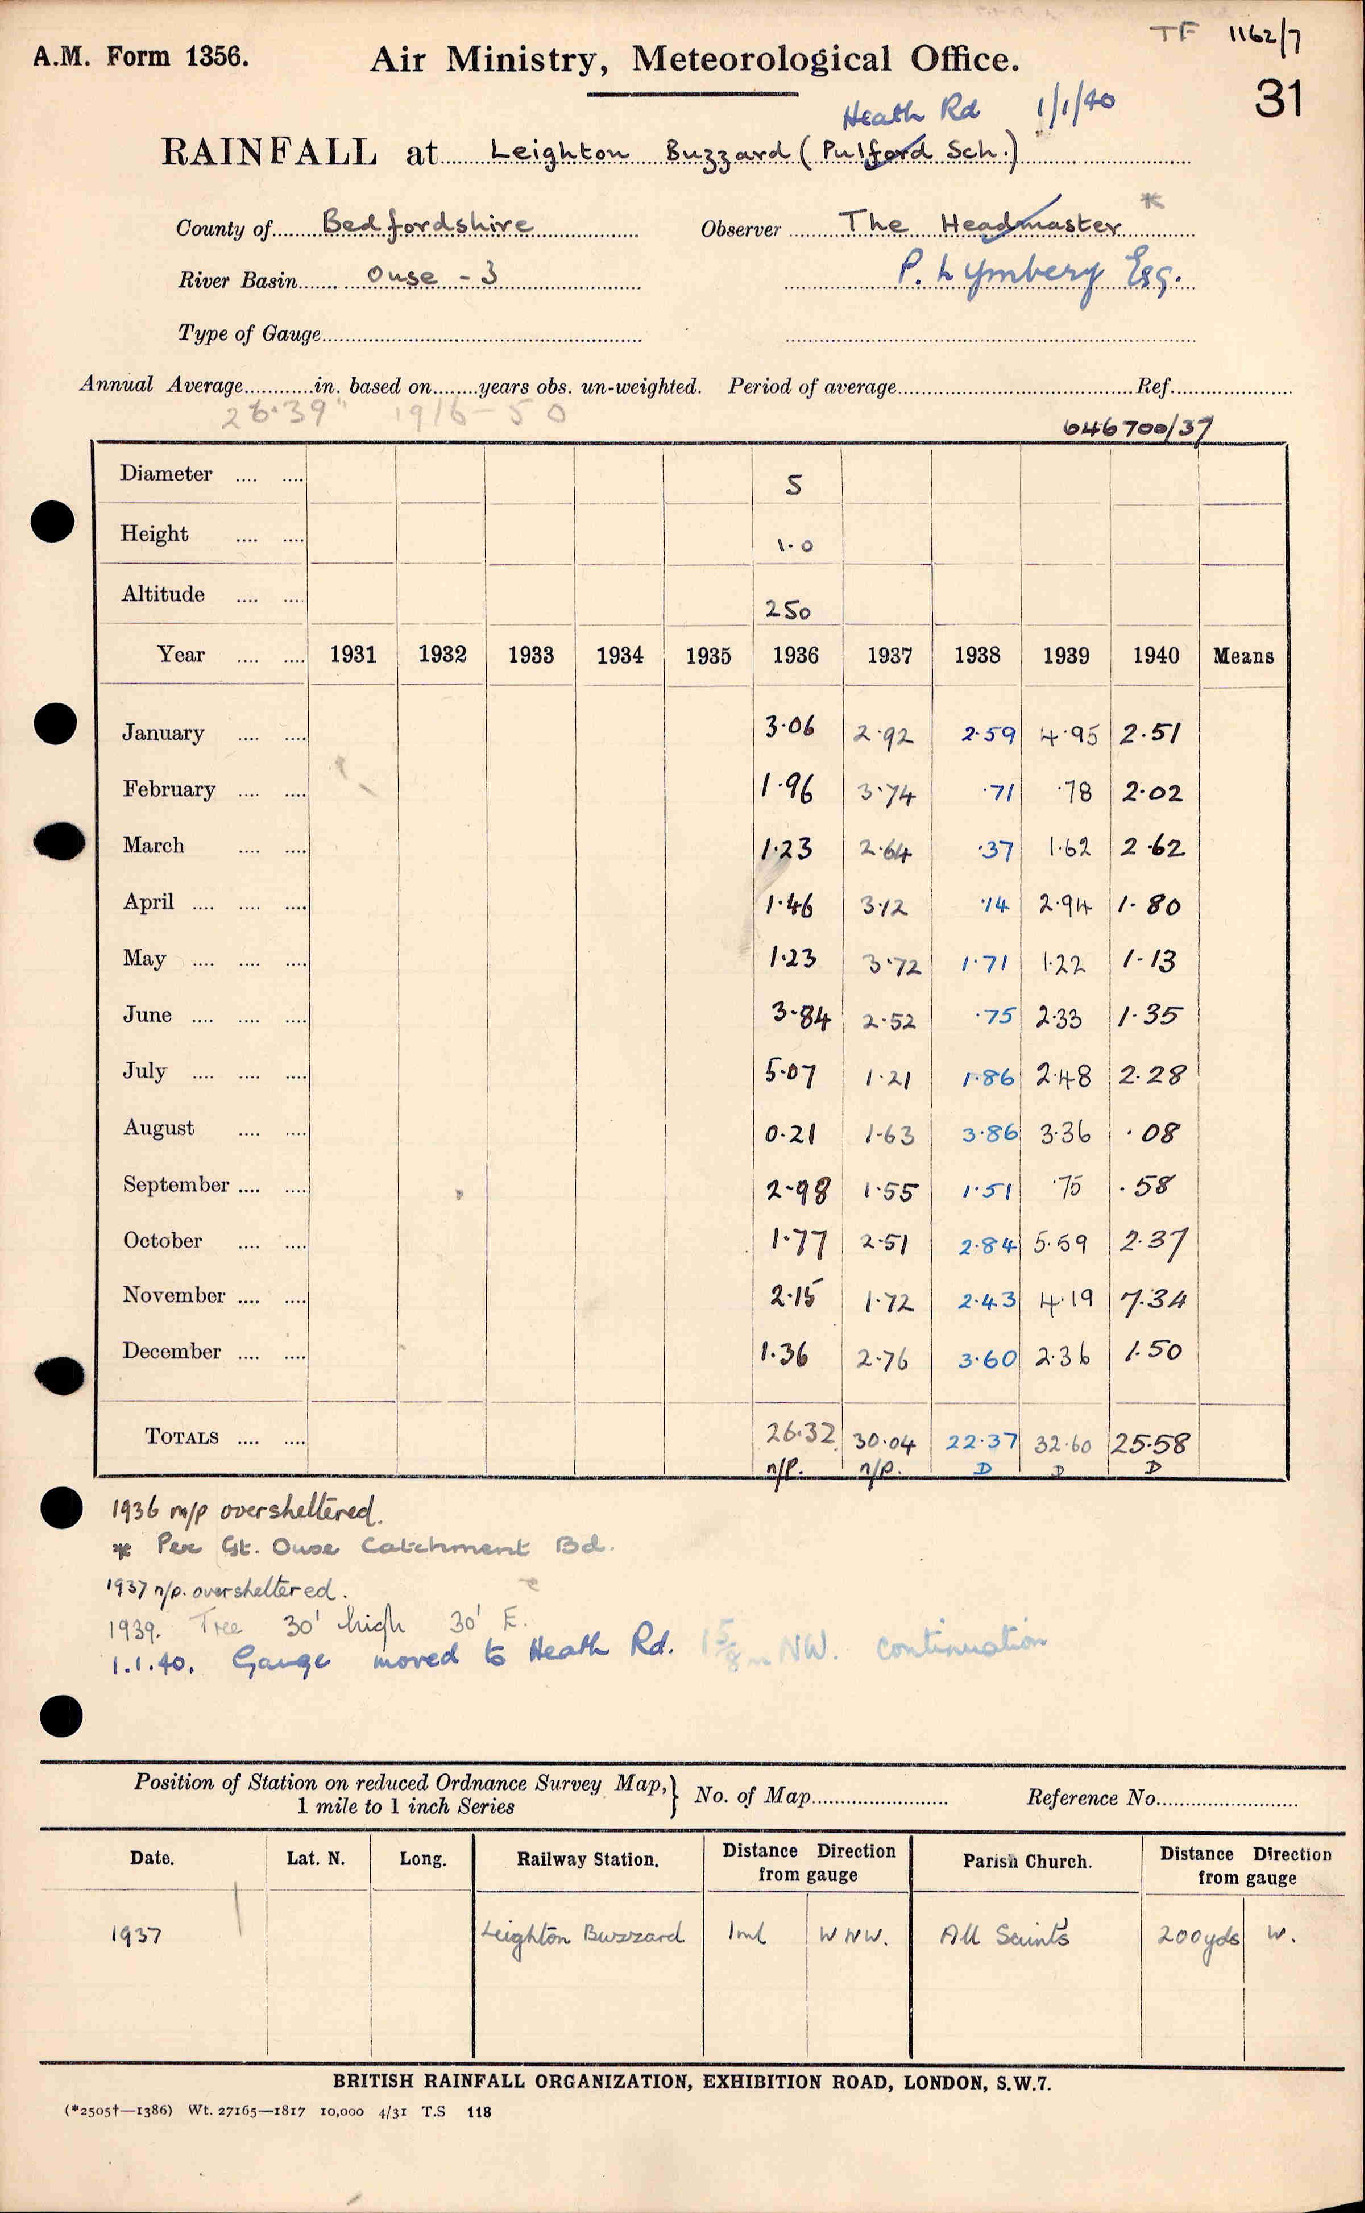 TF 1162/7
A.M. Form 1356. Air Ministry, Meteorological Office.
31
Heath Rd 1/1/40
RAINFALL at Leighton Buzzard (Pulford Sch.)
County of Bedfordshire Observer The Headmaster *
River Basin Ouse - 3 P. Lymbery Esq.
Type of Gauge
Annual Average in. based on years obs. un-weighted. Period of average Ref.
26.39" 1916-50 646700/37
Diameter 5
Height 1.0
Altitude 250
Year 1931 1932 1933 1934 1935 1936 1937 1938 1939 1940 Means
January 3.06 2.92 2.59 4.95 2.51
February 1.96 3.74 .71 .78 2.02
March 1.23 2.64 .37 1.62 2.62
April 1.46 3.12 .14 2.94 1.80
May 1.23 3.72 1.71 1.22 1.13
June 3.84 2.52 .75 2.33 1.35
July 5.07 1.21 1.86 2.48 2.28
August 0.21 1.63 3.86 3.36 .08
September 2.98 1.55 1.51 .75 .58
October 1.77 2.51 2.84 5.59 2.37
November 2.15 1.72 2.43 4.19 7.34
December 1.36 2.76 3.60 2.36 1.50
TOTALS 26.32 30.04 22.37 32.60 25.58
n/p. n/p. D D D
1936 n/p oversheltered.
* Per Gt. Ouse Catchment Bd.
1937 n/p. oversheltered.
1939. Tree 30' high 30' E.
1.1.40. Gauge moved to Heath Rd. 1 5/8 m NW. continuation
Position of Station on reduced Ordnance Survey Map, } No. of Map Reference No.
1 mile to 1 inch Series
Date. Lat. N. Long. Railway Station. Distance Direction from gauge Parish Church. Distance Direction from gauge
1937 Leighton Buzzard 1ml WNW. All Saints 200yds W.
BRITISH RAINFALL ORGANIZATION, EXHIBITION ROAD, LONDON, S.W.7.
(*2505†—1386) Wt. 27165—1817 10,000 4/31 T.S 118